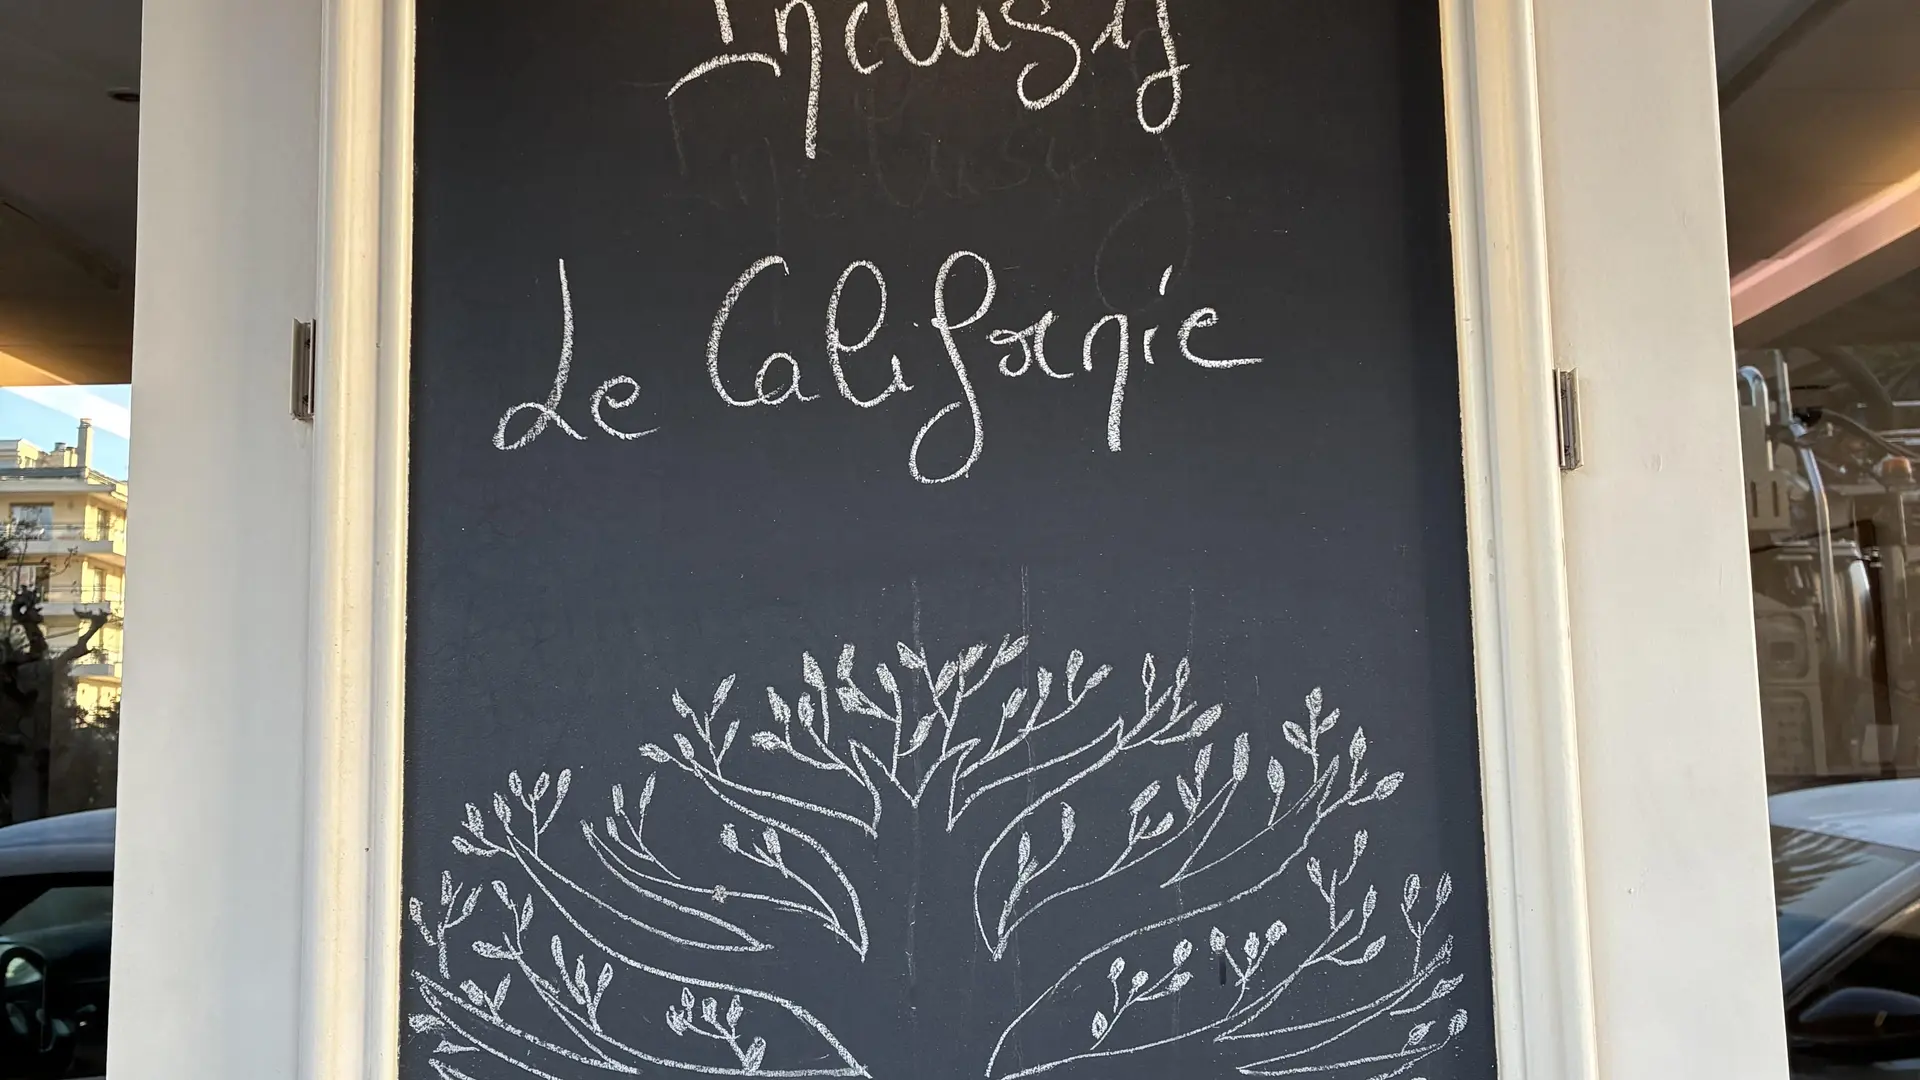 Inclusif
Le Californie